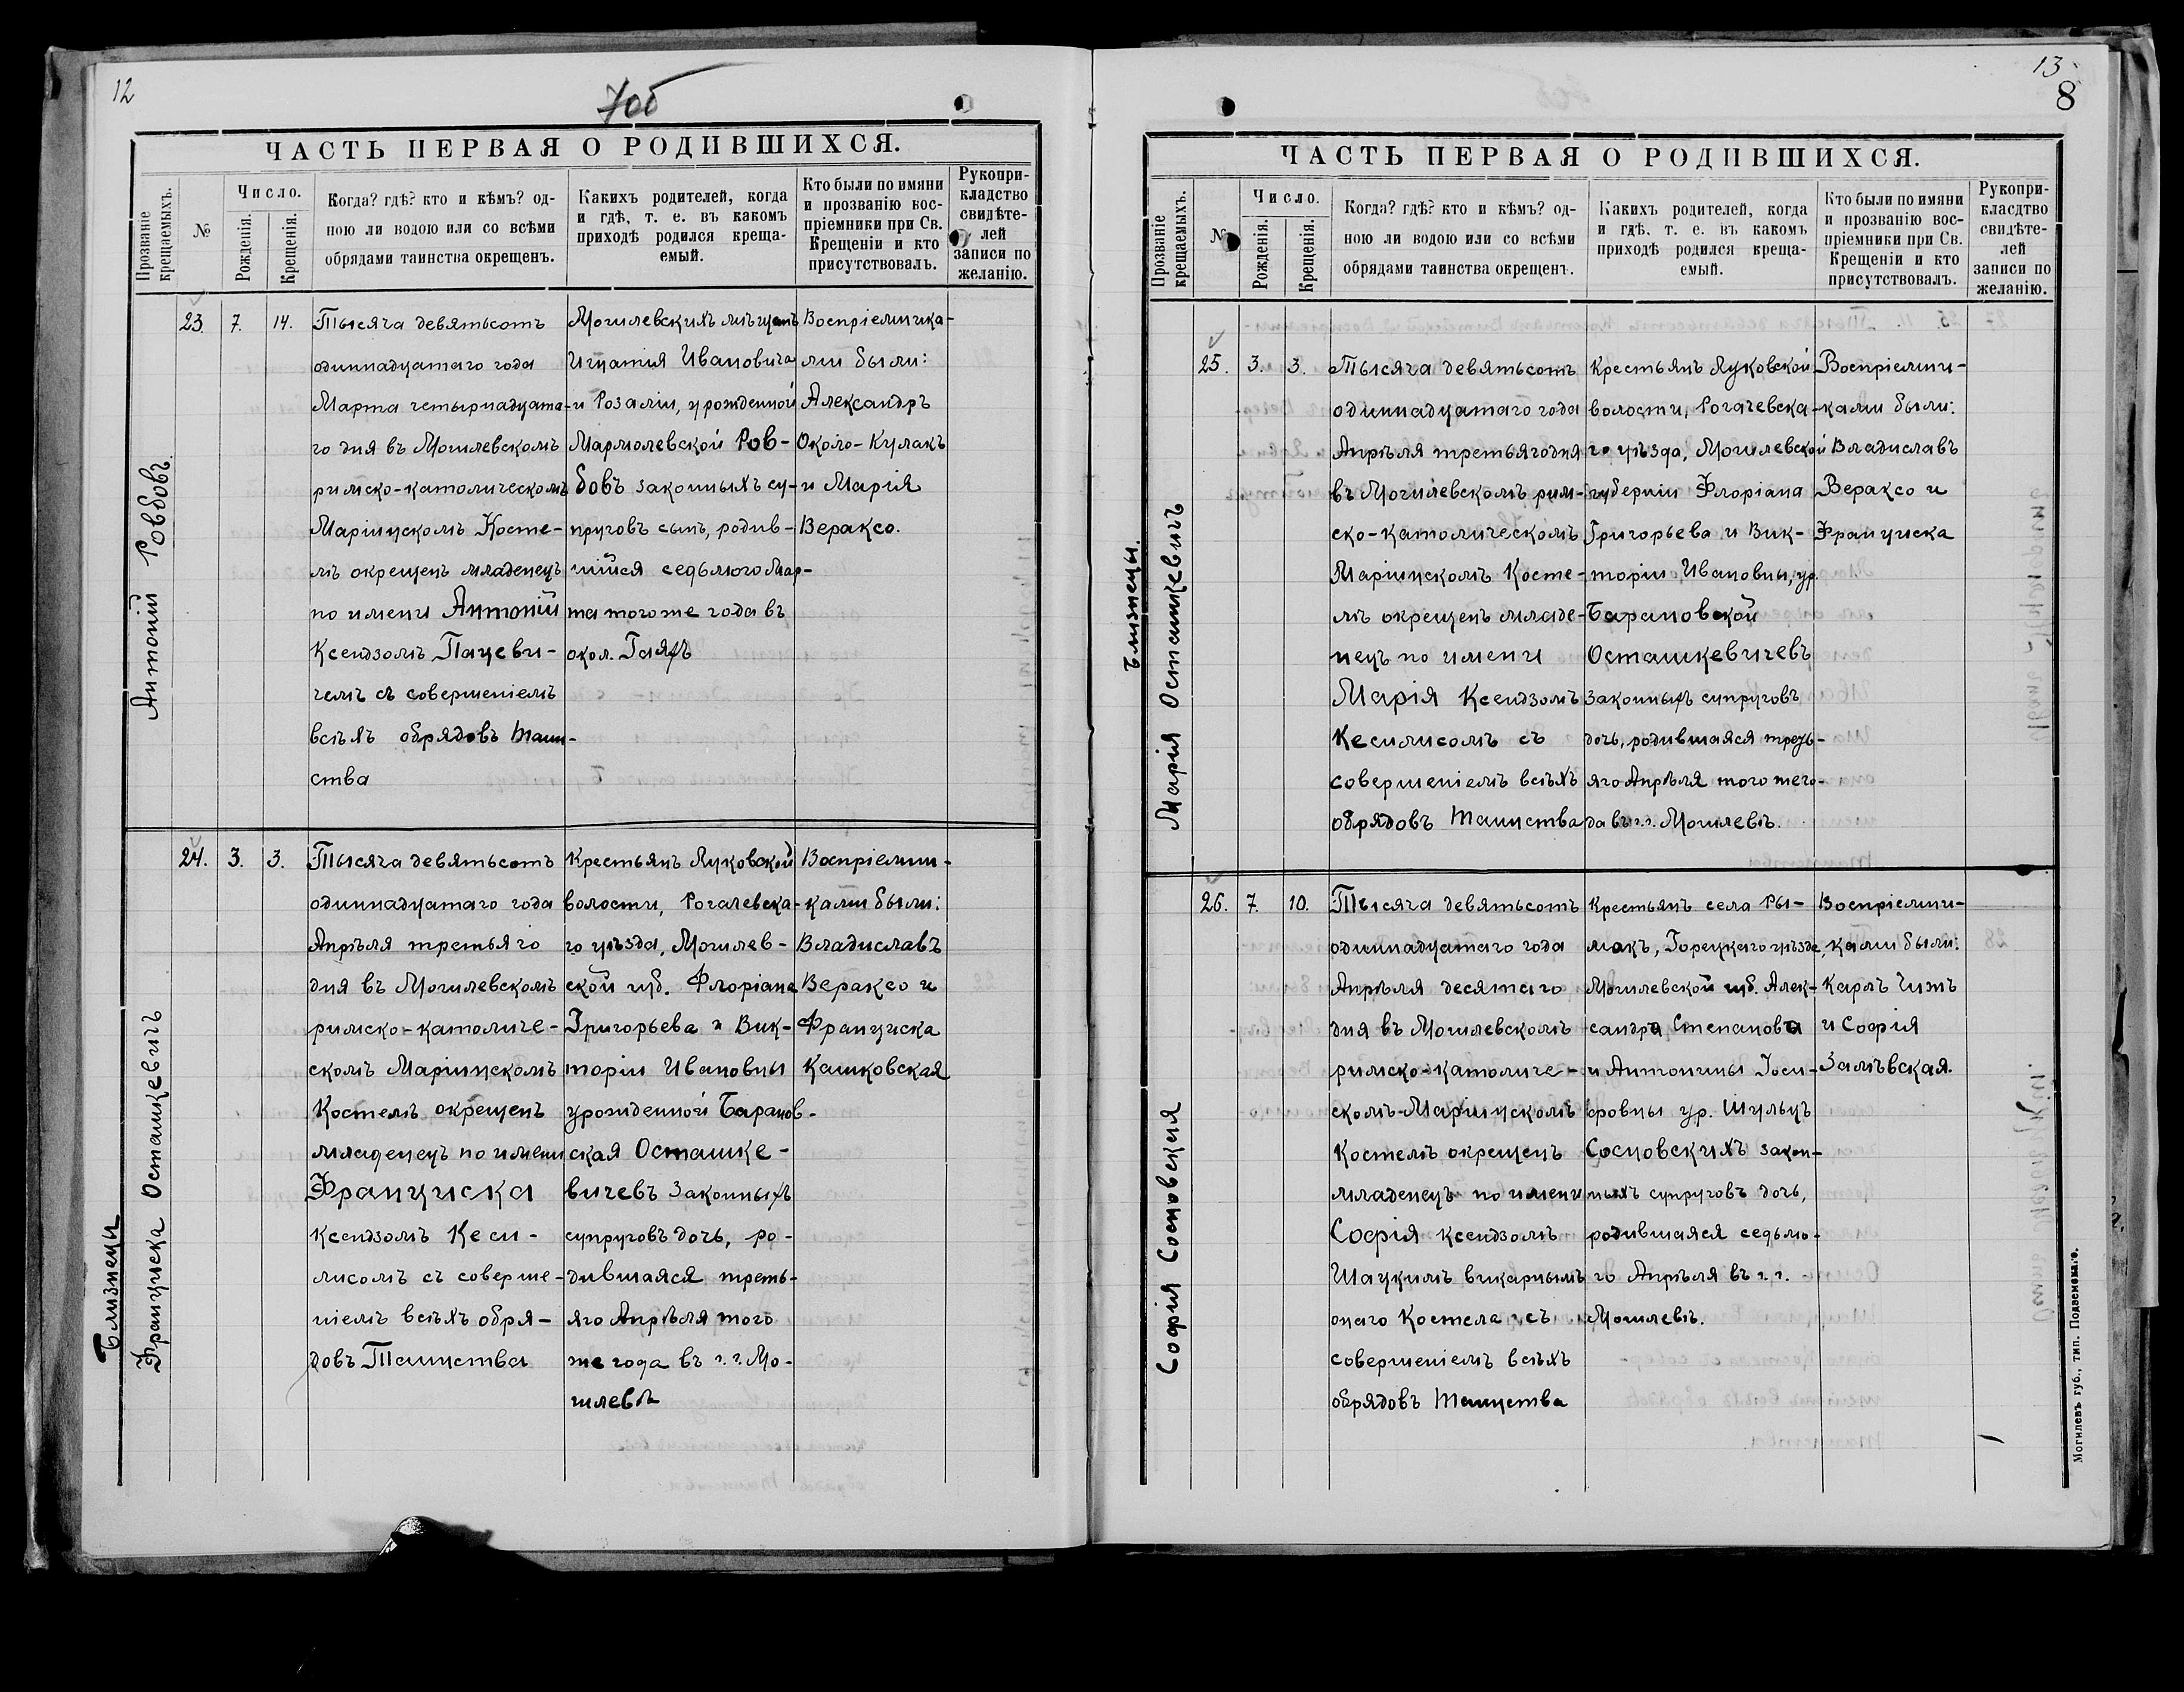 12
7об
ЧАСТЬ ПЕРВАЯ О РОДИВШИХСЯ.
Прозваніе крещаемыхъ.
№
Число.
Рожденія.
Крещенія.
Когда? гдѣ? кто и кѣмъ? од-
ною ли водою или со всѣми
обрядами таинства окрещенъ.
Какихъ родителей, когда
и гдѣ, т. е. въ какомъ
приходѣ родился креща-
емый.
Кто были по имяни
и прозванію вос-
пріемники при Св.
Крещеніи и кто
присутствовалъ.
Рукопри-
кладство
свидѣте-
лей
записи по
желанію.
Антоній Ровбовъ
23.
7.
14.
Тысяча девятьсотъ
одиннадцатаго года
Марта четырнадцата-
го дня въ Могилевскомъ
римско-католическомъ
Маріинскомъ Косте-
лѣ окрещенъ младенецъ
по имени Антоній
Ксендзомъ Пацеви-
чемъ съ совершеніемъ
всѣхъ обрядовъ Таин-
ства
Могилевскихъ мѣщанъ
Игнатія Ивановича
и Розаліи, урожденной
Мармолевской Ров-
бовъ законныхъ су-
пруговъ сынъ, родив-
шійся седьмого Мар-
та того же года въ
окол.
Воспріемника-
ми были:
Александръ
Около-Кулакъ
и Марія
Вераксо.
Близнецы
Франциска Осташкевичъ
24.
3.
3.
Тысяча девятьсотъ
одиннадцатаго года
Апрѣля третьяго
дня въ Могилевскомъ
римско-католиче-
скомъ Маріинскомъ
Костелѣ окрещенъ
младенецъ по имени
Франциска
Ксендзомъ Кеси-
лисомъ съ соверше-
ніемъ всѣхъ обря-
довъ Таинства
Крестьянъ Луковской
волости, Рогачевска-
го уѣзда, Могилев-
ской губ. Флоріана
Григорьева и Вик-
торіи Ивановны
урожденной Баранов-
ская Осташке-
вичевъ законныхъ
супруговъ дочь, ро-
дившаяся треть-
яго Апрѣля того
же года въ г. г. Мо-
гилевѣ
Воспріемни-
ками были:
Владиславъ
Вераксо и
Франциска
Кашковская
13
8
ЧАСТЬ ПЕРВАЯ О РОДИВШИХСЯ.
Прозваніе крещаемыхъ.
№
Число.
Рожденія.
Крещенія.
Когда? гдѣ? кто и кѣмъ? од-
ною ли водою или со всѣми
обрядами таинства окрещенъ.
Какихъ родителей, когда
и гдѣ, т. е. въ какомъ
приходѣ родился креща-
емый.
Кто были по имяни
и прозванію вос-
пріемники при Св.
Крещеніи и кто
присутствовалъ.
Рукопри-
класдтво
свидѣте-
лей
записи по
желанію.
Близнецы.
Марія Осташкевичъ
25.
3.
3.
Тысяча девятьсотъ
одиннадцатаго года
Апрѣля третьяго дня
въ Могилевскомъ рим-
ско-католическомъ
Маріинскомъ Косте-
лѣ окрещенъ младе-
нецъ по имени
Марія Ксендзомъ
Кесилисомъ съ
совершеніемъ всѣхъ
обрядовъ Таинства
Крестьянъ Луковской
волости, Рогачевска-
го уѣзда, Могилевской
губерніи Флоріана
Григорьева и Вик-
торіи Ивановны, ур.
Барановской
Осташкевичевъ
законныхъ супруговъ
дочь, родившаяся треть-
яго Апрѣля того же го-
да въ г. г. Могилевѣ.
Воспріемни-
ками были:
Владиславъ
Вераксо и
Франциска
Софія Сосновская
26.
7.
10.
Тысяча девятьсотъ
одиннадцатаго года
Апрѣля десятаго
дня въ Могилевскомъ
римско-католиче-
скомъ Маріинскомъ
Костелѣ окрещенъ
младенецъ по имени
Софія ксендзомъ
Шацкимъ викарнымъ
онаго Костела съ
совершеніемъ всѣхъ
обрядовъ Таинства
Крестьянъ села Ры-
макъ, Горецкаго уѣзда,
Могилевской губ. Алек-
сандра Степанова
и Антонины Іоси-
фовны ур. Шульцъ
Сосновскихъ закон-
ныхъ супруговъ дочь,
родившаяся седьмо-
го Апрѣля въ г. г.
Могилевѣ.
Воспріемни-
ками были:
Карлъ Чижъ
и Софія
Залѣвская.
Могилевъ губ., тип. Подземскаго.